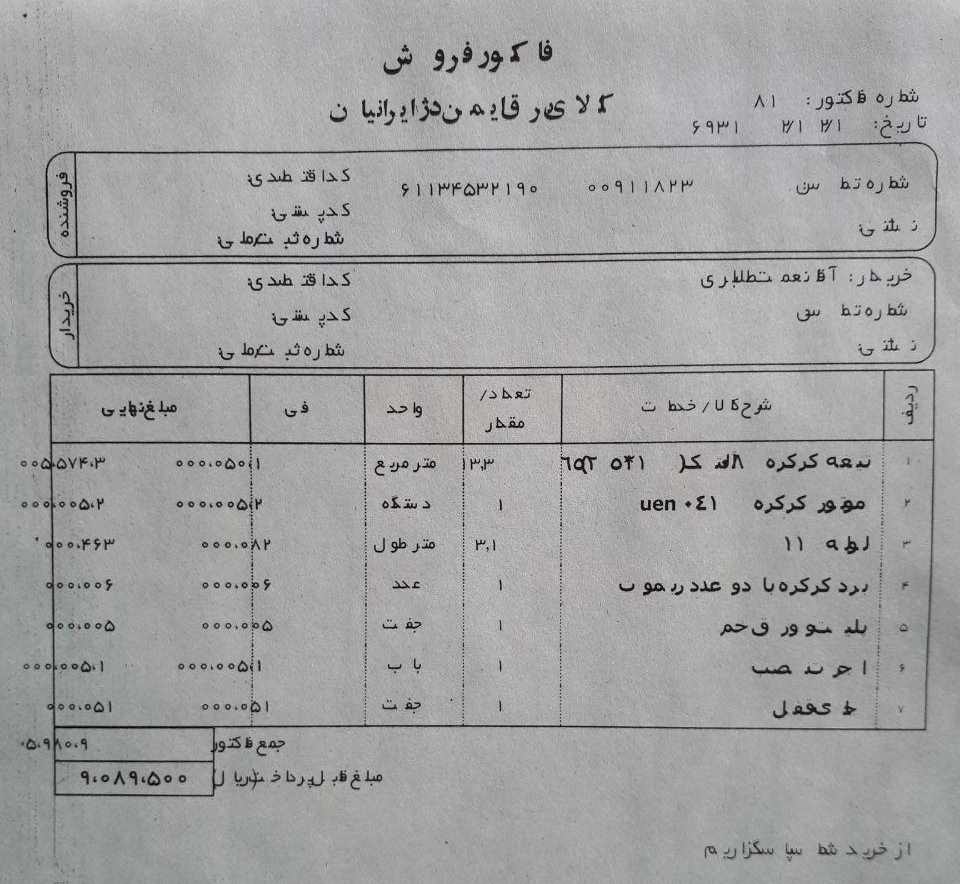 فاکتور فروش
کالای برقی ایمن دژ ایرانیان
شماره فاکتور: ۸۱
تاریخ: ۱۲/ ۱۲/ ۱۳۹۶
فروشنده
شماره تماس ۰۰۹۱۱۸۲۳ ۶۱۱۳۴۵۳۲۱۹۰ کد اقتصادی:
کد پستی:
نشانی: شماره ثبت/ملی:
خریدار
خریدار: آقا نعمت طلابری کد اقتصادی:
شماره تماس کد پستی:
نشانی: شماره ثبت/ملی:
ردیف شرح کالا/ خدمات تعداد/ مقدار واحد فی مبلغ نهایی
۱ تیغه کرکره ۱۳،۳ متر مربع ۰۰۰،۰۵۰،۱ ۰۰۵،۵۷۴،۳
۲ موتور کرکره uen ۰۴۱ ۱ دستگاه ۰۰۰،۰۰۵،۲ ۰۰۰،۰۰۵،۲
۳ لوله ۱۱ ۳،۱ متر طول ۰۰۰،۰۸۲ ۰۰۰،۴۶۳
۴ برد کرکره با دو عدد ریموت ۱ عدد ۰۰۰،۰۰۶ ۰۰۰،۰۰۶
۵ ۱ جفت ۰۰۰،۰۰۵ ۰۰۰،۰۰۵
۶ اجرت نصب ۱ باب ۰۰۰،۰۰۵،۱ ۰۰۰،۰۰۵،۱
۷ جای قفل ۱ جفت ۰۰۰،۰۵۱ ۰۰۰،۰۵۱
جمع فاکتور ۰۵،۹۸۰،۹
مبلغ قابل پرداخت(ریال) ۹،۰۸۹،۵۰۰
از خرید شما سپاسگزاریم